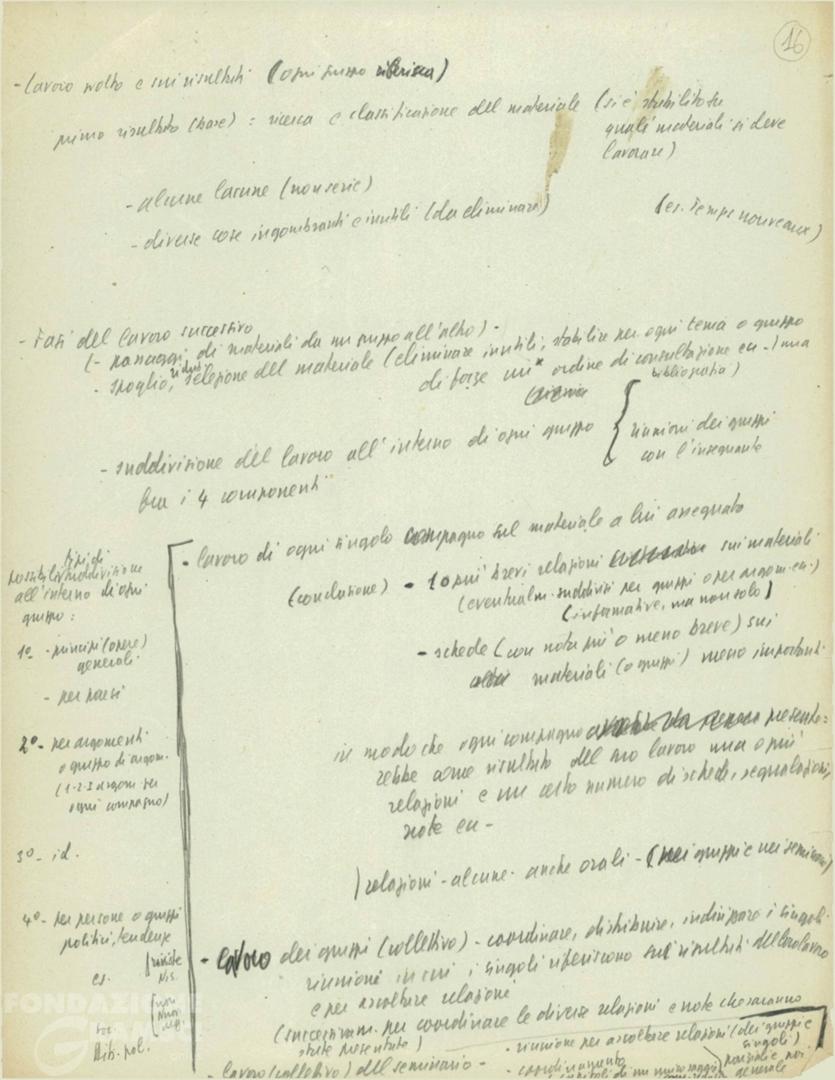 16
- Lavoro svolto e sui risultati (ogni gruppo riferisca)
primo risultato (base) : ricerca e classificazione del materiale (si è stabilito su
quali materiali si deve
lavorare)
- alcune lacune (non serie)
- diverse cose ingombranti e inutili (da eliminare) (es. Temps nouveaux)
- Fasi del lavoro successivo
(- passaggi di materiali da un gruppo all'altro) -
- spoglio, selezione del materiale (eliminare inutili, stabilire per ogni tema o gruppo
di forse un ordine di consultazione ecc -) una
bibliografia)
- suddivisione del lavoro all'interno di ogni gruppo
tra i 4 componenti
riunioni dei gruppi
con l'insegnante
- lavoro di ogni singolo compagno sul materiale a lui assegnato
(conclusione) - 1 o più brevi relazioni sui materiali
(eventualm. suddivisi per gruppi o per argom. ecc.)
(informative, ma non solo)
- schede (con nota più o meno breve) sui
materiali (o gruppi) meno importanti
in modo che ogni compagno presente=
rebbe come risultato del suo lavoro una o più
relazioni e un certo numero di schede, segnalazioni,
note ecc -
) relazioni - alcune - anche orali - (nei gruppi e nei seminari)
tipi di
possibili suddivisione
all'interno di ogni
gruppo :
1º - principi (opere)
generali
- per paesi
2º - per argomenti
o gruppo di argom.
(1-2-3 argom. per
ogni compagno)
3º - id.
4º - per persone o gruppi
politici, tendenze
es.
riviste
soc.
lib. pol.
- lavoro dei gruppi (collettivo) - coordinare, distribuire, indirizzare i singoli
riunioni in cui i singoli riferiscono sui risultati del loro lavoro
e per ascoltare relazioni
(successivam. per coordinare le diverse relazioni e note che saranno
state presentate)
- lavoro (collettivo) del seminario - - riunione per ascoltare relazioni (dei gruppi e
singoli)
- coordinamento
generale
FONDAZIONE